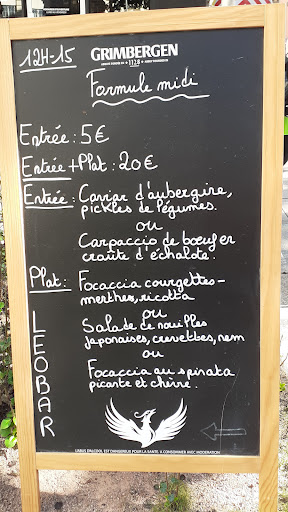 12H-15
GRIMBERGEN
1128
Formule midi
Entrée: 5€
Entrée + Plat: 20€
Entrée: Caviar d'aubergine,
pickles de légumes.
ou
Carpaccio de bœuf er
croûte d'échalote.
Plat: Focaccia courgettes-
menthes, ricotta
ou
Salade de nouilles
japonaises, crevettes, nem
ou
Focaccia au spinata
picante et chèvre.
LEOBAR
L'ABUS D'ALCOOL EST DANGEREUX POUR LA SANTÉ. À CONSOMMER AVEC MODÉRATION
GRIMBERGEN